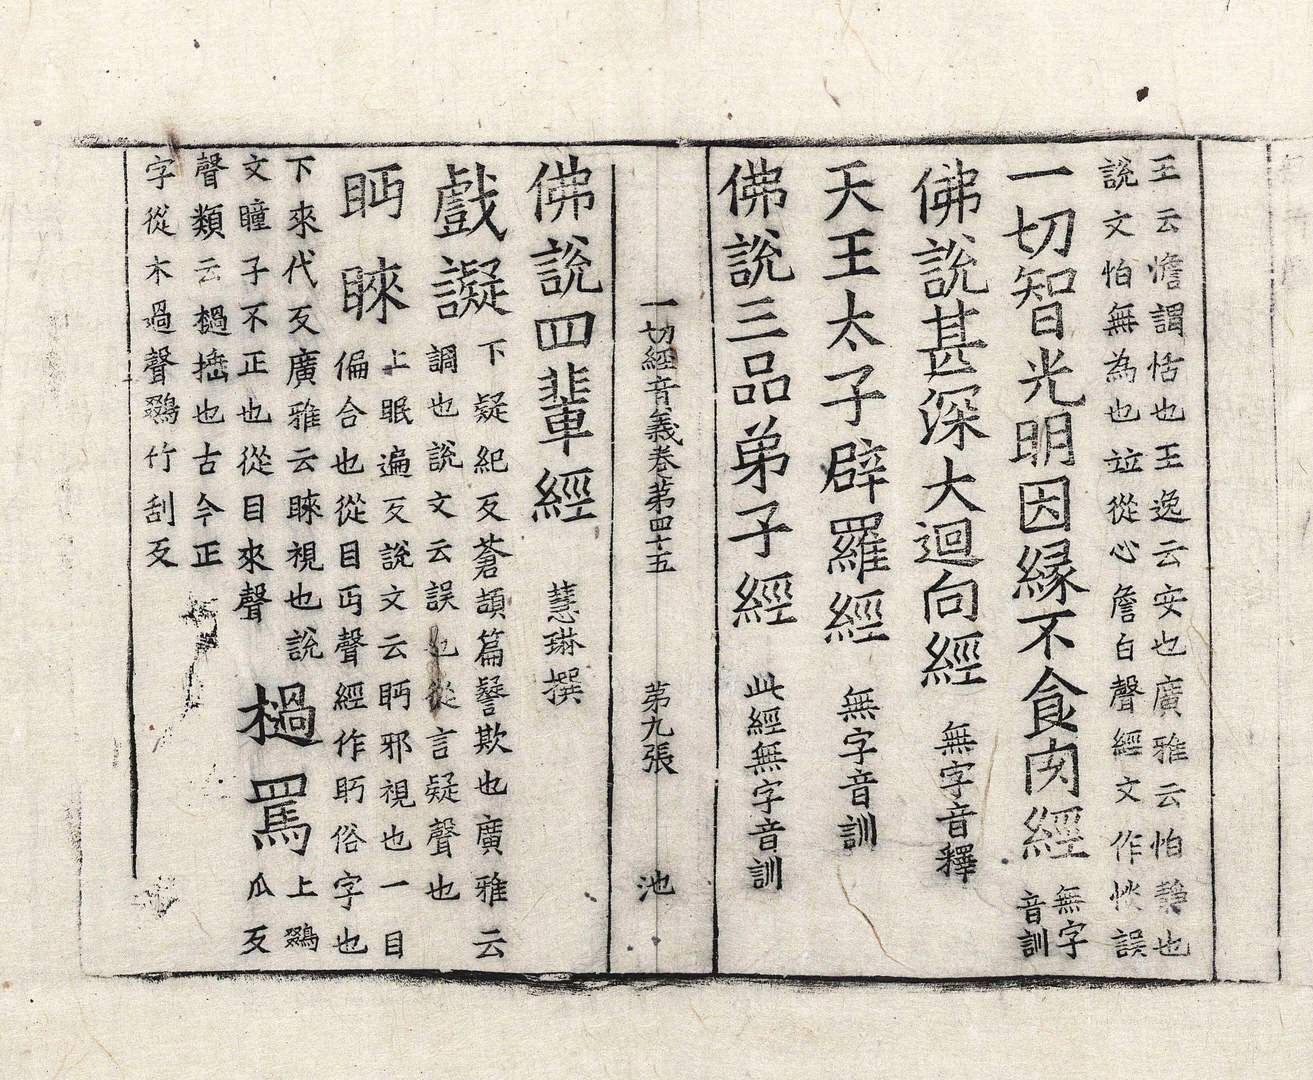 王云憺謂恬也王逸云安也廣雅云怕靜也
說文怕無為也竝從心詹白聲經文作惔誤
一切智光明因緣不食肉經 無字
音訓
佛說甚深大迴向經 無字音釋
天王太子辟羅經 無字音訓
佛說三品弟子經 此經無字音訓
一切經音義卷第四十五 第九張 池
佛說四輩經 慧琳撰
戲譺 下疑紀反蒼頡篇譺欺也廣雅云
調也說文云誤也從言疑聲也
眄睞 上眠遍反說文云眄邪視也一目
偏合也從目丏聲經作眄俗字也
下來代反廣雅云睞視也說
文瞳子不正也從目來聲
檛罵 上
瓜反
聲類云檛捶也古今正
字從木過聲竹刮反